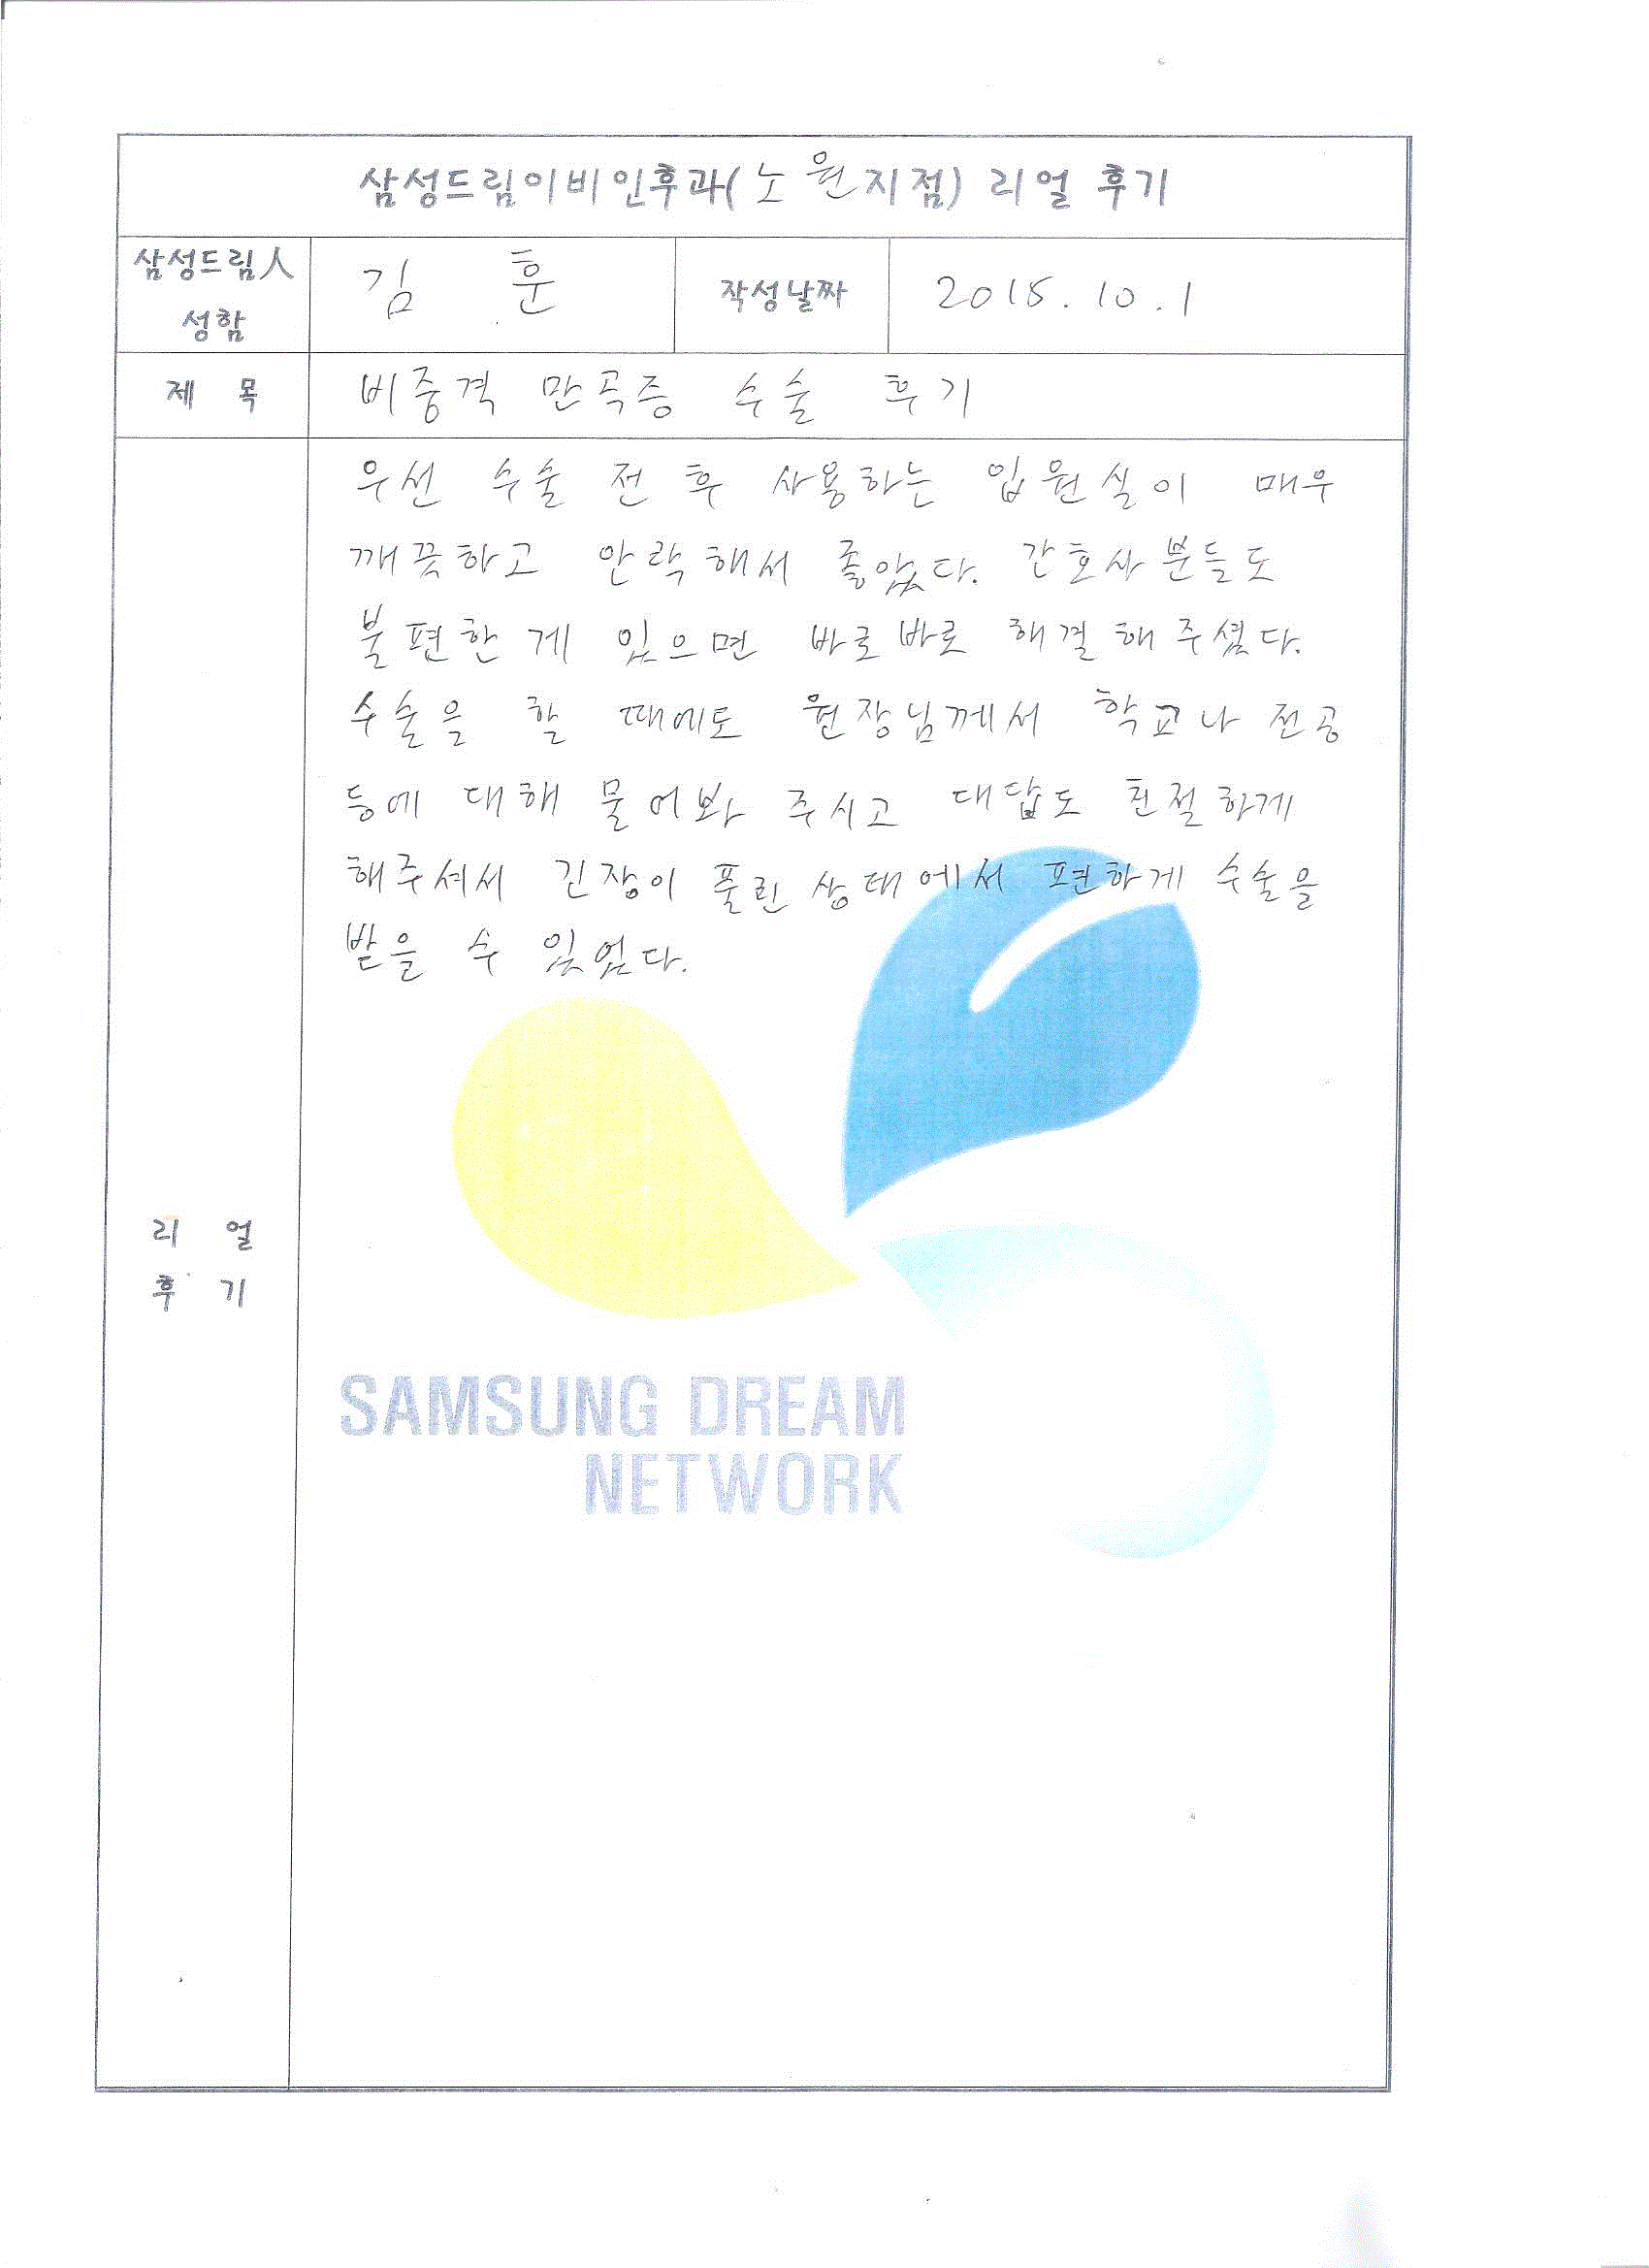 삼성드림이비인후과(노원지점) 리얼 후기
삼성드림人
성함
김 훈
작성날짜
2015. 10. 1
제 목
비중격 만곡증 수술 후기
우선 수술 전 후 사용하는 입원실이 매우
깨끗하고 안락해서 좋았다. 간호사분들도
불편한 게 있으면 바로바로 해결해주셨다.
수술을 할 때에도 원장님께서 학교나 전공
등에 대해 물어봐 주시고 대답도 친절하게
해주셔서 긴장이 풀린 상태에서 편하게 수술을
받을 수 있었다.
리 얼
후 기
SAMSUNG DREAM
NETWORK